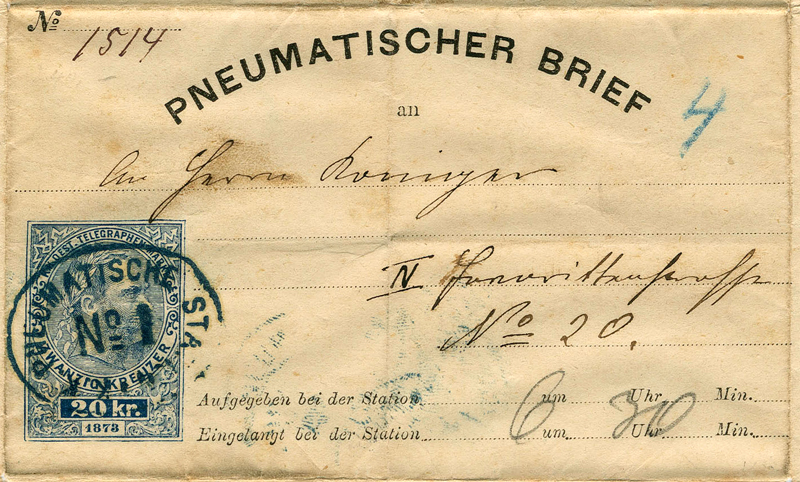 No 1514
PNEUMATISCHER BRIEF
an
4
An Herrn Koninger
IV Favorittenstrasse
No 20.
TELEGRAPHEN
PNEUMATISCHE STA
No 1
ZWANZIG KREUZER
20 kr.
1873
Aufgegeben bei der Station um Uhr Min.
Eingelangt bei der Station 6 um 30 Uhr Min.